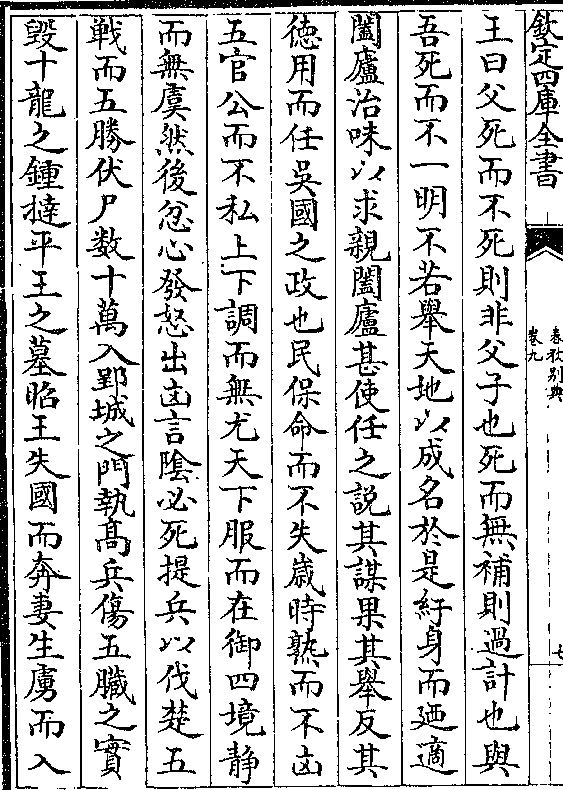 欽定四庫全書
春秋别典
卷九
七
王曰父死而不死則非父子也死而無補則過計也與
吾死而不一明不若舉天地以成名於是紆身而廼適
闔廬治味以求親闔廬甚使任之說其謀果其舉反其
徳用而任吳國之政也民保命而不失歲時熟而不凶
五官公而不私上下調而無尤天下服而在御四境靜
而無虞然後忿心發怒出凶言隂必死提兵以伐楚五
戦而五勝伏尸数十萬入郢城之門執髙兵傷五臟之實
毀十龍之鍾撻平王之墓昭王失國而奔妻生虜而入